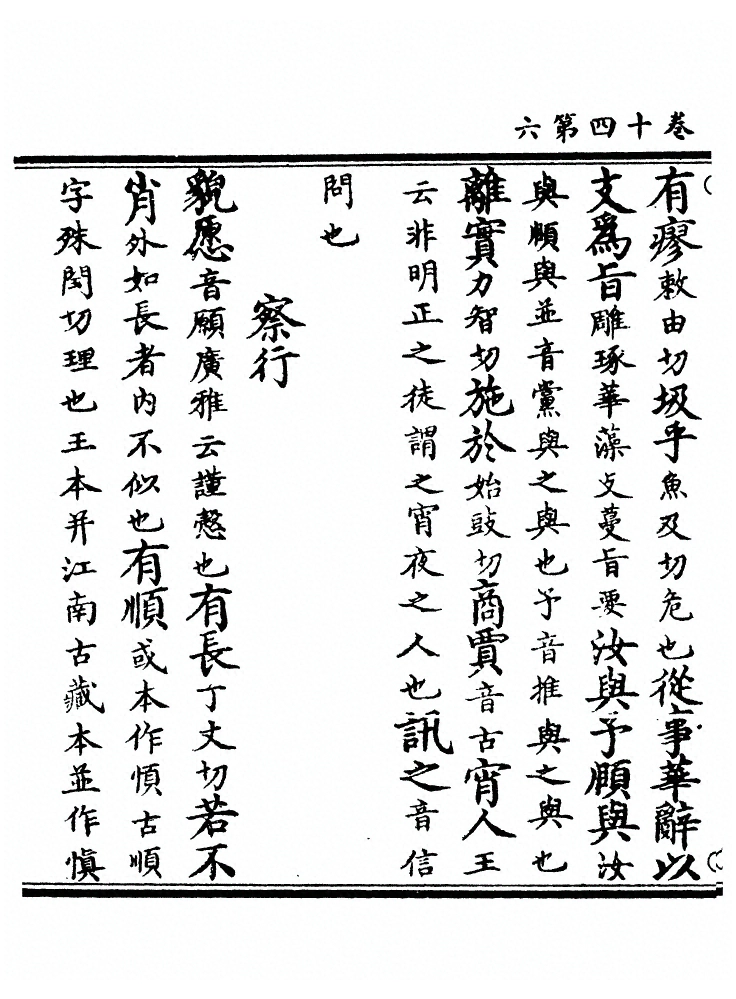 卷十四第六
有瘳敕由切圾乎魚及切危也從事華辭以
支爲旨雕琢華藻攴蔓旨要汝與予頤與汝
與頤與並音黨與之與也予音推與之與也
離實力智切施於始豉切商賈音古宵人王
云非明正之徒謂之宵夜之人也訊之音信
問也
察行
貌愿音願廣雅云謹愨也有長丁丈切若不
肖外如長者內不似也有順或本作慎古順
字殊閏切理也王本并江南古藏本並作慎